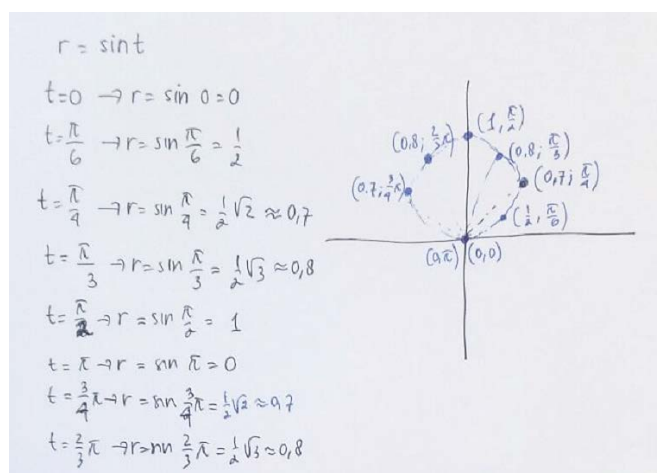 r = sin t
t=0 → r= sin 0 = 0
t= π/6 → r= sin π/6 = 1/2
t= π/4 → r= sin π/4 = 1/2 √2 ≈ 0,7
t= π/3 → r= sin π/3 = 1/2 √3 ≈ 0,8
t= π/2 → r= sin π/2 = 1
t= π → r = sin π = 0
t= 3/4 π → r = sin 3/4 π = 1/2 √2 ≈ 0,7
t= 2/3 π → r= sin 2/3 π = 1/2 √3 ≈ 0,8
(1, π/2)
(0,8; 2/3 π)
(0,8; π/3)
(0.7; 3/4 π)
(0,7; π/4)
(1/2, π/6)
(0,π) (0,0)